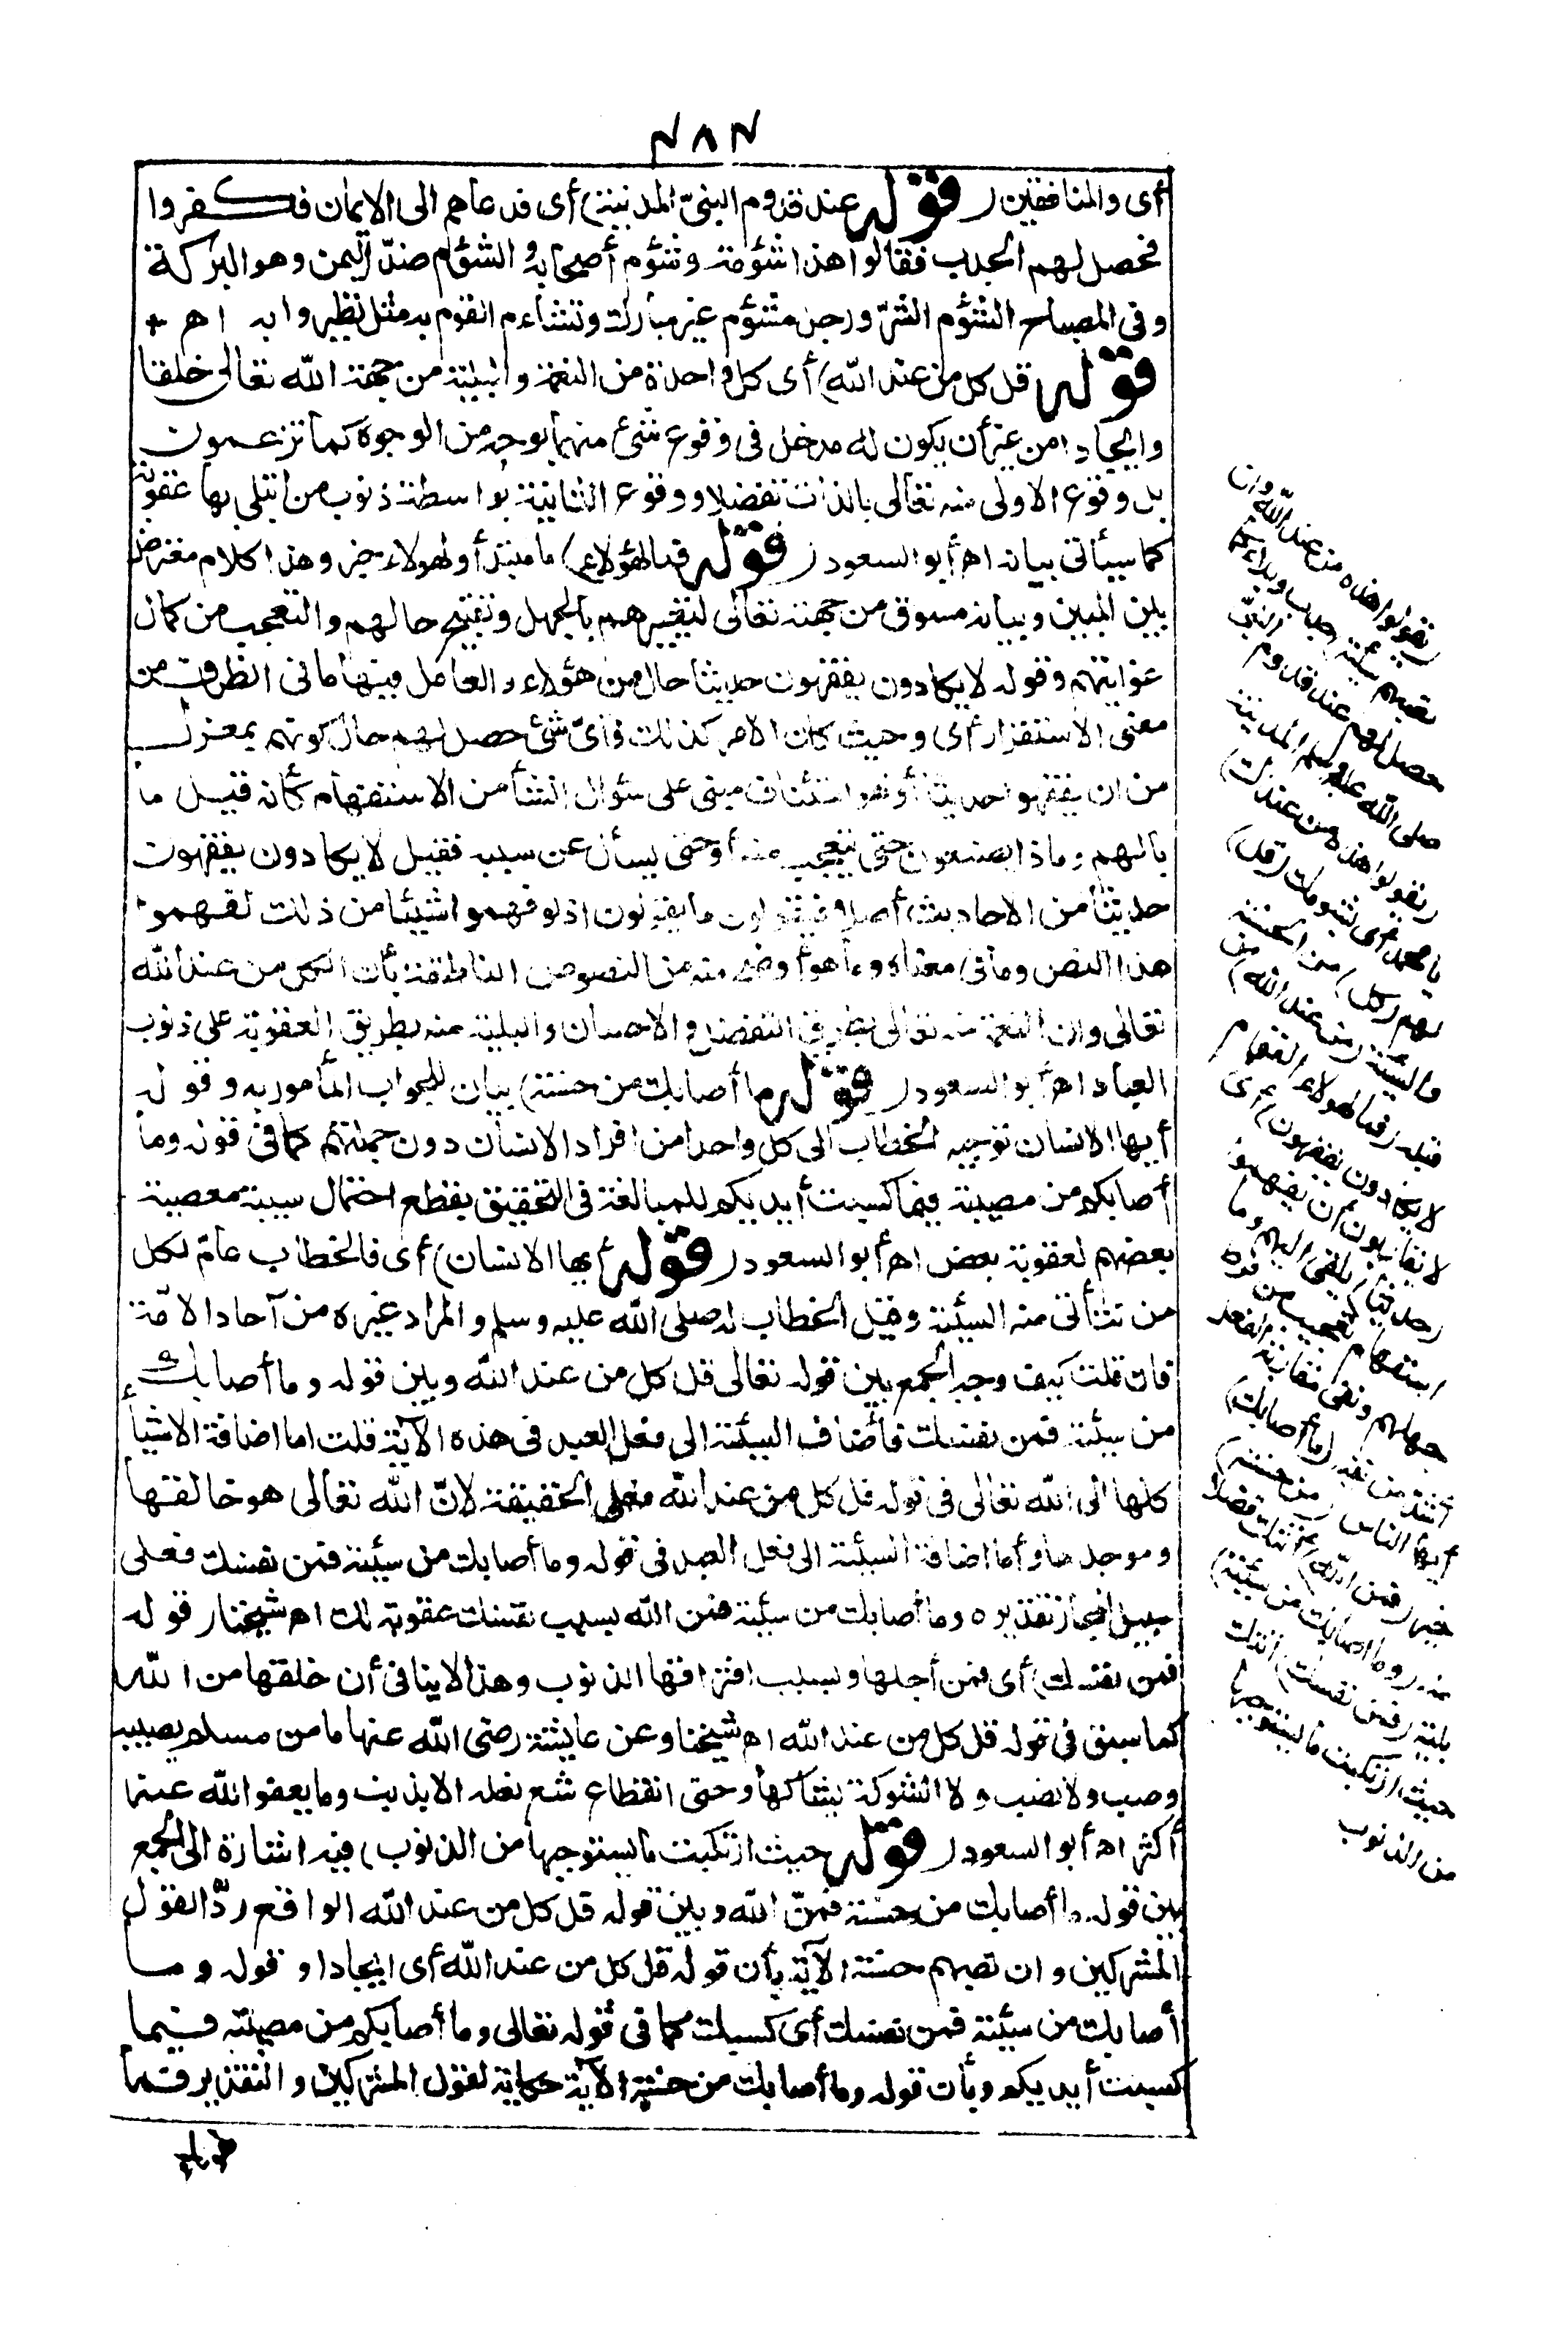 ٣٨٣
أى والمنافقين (قوله عند قدوم النبىّ المدينة) أى فدعاهم الى الايمان فكفروا
فحصل لهم الجدب فقالوا هذا شؤمه وشؤم أصحابه والشؤم ضدّ اليمن وهو البركة
وفى المصباح الشؤم الشرّ ورجل مشؤم غير مبارك وتشاءم القوم به مثل تطيروا به اه +
قوله قل كل من عند الله) أى كل واحدة من النعمة والبلية من جهة الله تعالى خلقا
وايجادا من غير أن يكون له مدخل فى وقوع شئ منهما بوجه من الوجوه كما تزعمون
بل وقوع الاولى منه تعالى بالذات تفضلا ووقوع الثانية بواسطة ذنوب من ابتلى بها عقوبة
كما سيأتى بيانه اه أبو السعود (قوله فمالهؤلاء) ما مبتدأ ولهؤلاء خبر وهذا كلام معترض
بين المبين وبيانه مسوق من جهته تعالى لتعييرهم بالجهل وتقبيح حالهم والتعجيب من كمال
غوايتهم وقوله لا يكادون يفقهون حديثا حال من هؤلاء والعامل فيها ما فى الظرف من
معنى الاستقرار أى وحيث كان الامر كذلك فأىّ شئ حصل لهم حال كونهم بمعزل
من ان يفقهوا حديثا أو هو استئناف مبنى على سؤال نشأ من الاستفهام كأنه قيل ما
بالهم وماذا يصنعون حتى يتعجب منه أو حتى يسأل عن سببه فقيل لا يكادون يفقهون
حديثا من الاحاديث أصلا فيقولون ما يقولون اذ لو فهموا شيئا من ذلك لفهموا
هذا النص وما فى معناه وما هو أوضح منه من النصوص الناطقة بأن الكل من عند الله
تعالى وان النعمة منه تعالى بطريق التفضل والاحسان والبلية منه بطريق العقوبة على ذنوب
العباد اه أبو السعود (قوله ما أصابك من حسنة) بيان للجواب المأمور به وقوله
أيها الانسان توجيه الخطاب الى كل واحد من افراد الانسان دون جملتهم كما فى قوله وما
أصابكم من مصيبة فبما كسبت أيديكم للمبالغة فى التحقيق بقطع احتمال سببية معصية
بعضهم لعقوبة بعض اه أبو السعود (قوله أيها الانسان) أى فالخطاب عامّ لكل
من تتأتى منه السيئة وقيل الخطاب له صلى الله عليه وسلم والمراد غيره من آحاد الامّة
فان قلت كيف وجه الجمع بين قوله تعالى قل كل من عند الله وبين قوله وما أصابك
من سيئة فمن نفسك فأضاف السيئة الى فعل العبد فى هذه الآية قلت اما اضافة الاشياء
كلها الى الله تعالى فى قوله قل كل من عند الله فعلى الحقيقة لانّ الله تعالى هو خالقها
وموجدها وأما اضافة السيئة الى فعل العبد فى قوله وما أصابك من سيئة فمن نفسك فعلى
سبيل المجاز تقديره وما أصابك من سيئة فمن الله بسبب نفسك عقوبة لك اه شيخنا (قوله
فمن نفسك) أى فمن أجلها وبسبب اقترافها الذنوب وهذا لا ينافى أن خلقها من الله
كما سبق فى قوله قل كل من عند الله اه شيخنا وعن عايشة رضى الله عنها ما من مسلم يصيبه
وصب ولا نصب ولا الشوكة يشاكها وحتى انقطاع شسع نعله الا بذنب وما يعفو الله عنه
أكثر اه أبو السعود (قوله حيث ارتكبت ما يستوجبها من الذنوب) فيه اشارة الى الجمع
بين قوله ما أصابك من حسنة فمن الله وبين قوله قل كل من عند الله الواقع ردّا لقول
المشركين وان تصبهم حسنة الآية بأن قوله قل كل من عند الله أى ايجادا وقوله وما
أصابك من سيئة فمن نفسك أى كسبك كما فى قوله تعالى وما أصابكم من مصيبة فبما
كسبت أيديكم وبأن قوله وما أصابك من حسنة الآية حكاية لقول المشركين والتقدير فما
يقولوا هذه من عند الله وان
تصبهم سيئة) جدب وبلاء كما
حصل لهم عند قدوم النبىّ
صلى الله عليه وسلم المدينة
(يقولوا هذه من عندك)
يا محمد أى بشومك (قل)
لهم (كل) من الحسنة
والسيئة (من عند الله) من
قبله (فما لهولاء القوم
لا يكادون يفقهون) أى
لا يقاربون أن يفهموا
(حديثا) يلقى اليهم وما
استفهام تعجيب من فرط
جهلهم ونفى مقاربة الفعل
أشدّ من نفيه (ما أصابك)
أيها الناس (من حسنة)
خير (فمن الله) أتتك فضلا
منه (وما أصابك من سيئة)
بلية (فمن نفسك) أتتك
حيث ارتكبت ما يستوجبها
من الذنوب